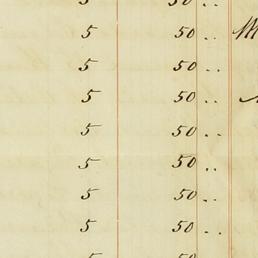 5 50 ..
5 50 ..
5 50 ..
5 50 ..
5 50 ..
5 50 ..
5 50 ..
5 50 ..
5 50